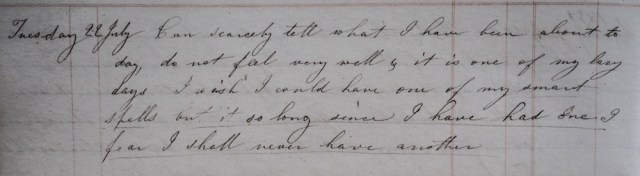 Tuesday 22 July Can scarcely tell what I have been about to
day, do not feel very well & it is one of my lazy
days I wish I could have one of my smart
spells but it so long since I have had one I
fear I shall never have another